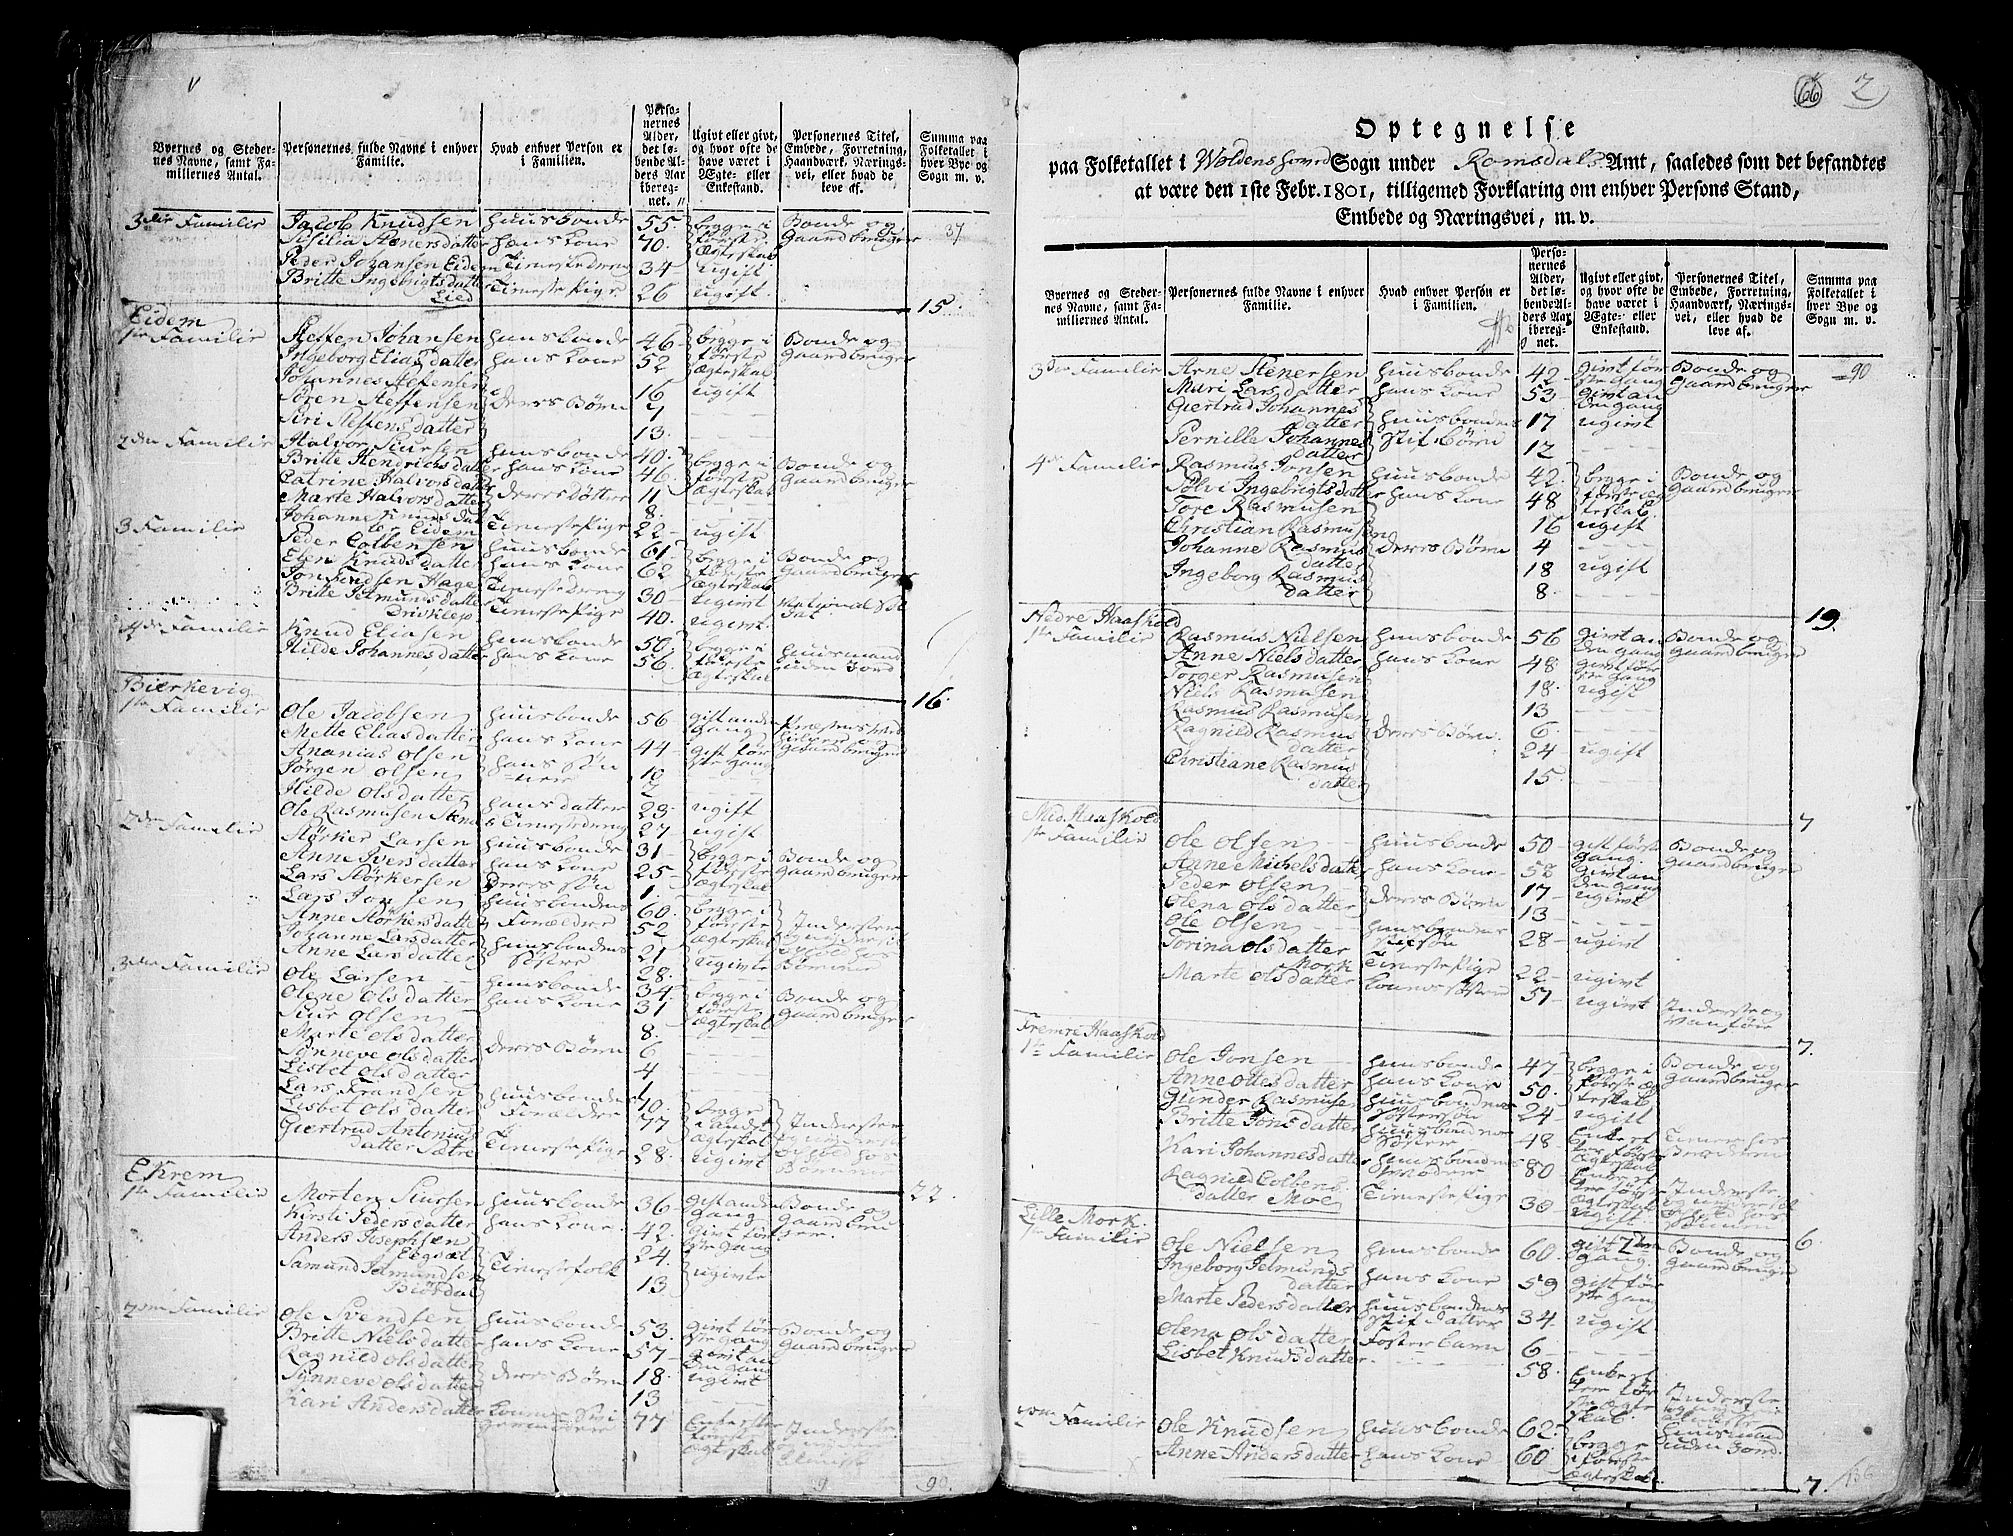 Byernes og Stedernes Navne, samt Familliernes Antal.
Personernes fulde Navne i enhver Familie.
Hvad enhver Person er i Familien.
Personernes Alder, det løbende Alders Aar iberegnet.
Ugivt eller givt, og hvor ofte de have været i Ægte- eller Enkestand.
Personernes Titel, Embede, Forretning, Haandværk, Næringsvei, eller hvad de leve af.
Summa paa Folketallet i hver Bye og Sogn m. v.
3die Familie Jacob Knudsen huusbonde 55. begge i Bonde og 37
Sisilia Stenersdatter hans Kone 40. første Gaardbruger
Peder Johansen Eidem Tienestedreng 34 ugift
Britte Ingebrigtsdatter Lied Tienestepige 26 ugift
15.
Eidem
1te Familie Steffen Johansen huusbonde 46 begge i Bonde og
Ingeborg Eliasdatter hans Kone 52 første Gaardbruger
Johannes Steffensen 16 ugift
Søren Steffensen deres Børn 7
Siri Steffensdatter 13.
2den Familie Halvor Siursen huusbonde 40. begge i Bonde og
Britte Hendrichsdatter hans Kone 46. første Gaardbruger
Catrine Halvorsdatter deres døtter 11
Marte Halvorsdatter 8.
Johanne Knudsdatter Eidem Tienestepige 22 ugift
3 Familie Peder Colbensen huusbonde 61 begge i Bonde og
Elen Knudsdatter hans Kone 62 første Gaardbruger
Jon Hage Tienestedreng 30 ugivt National Soldat
Britte Jetmundsdatter Driveklep Tienestepige 40. ugivt
4de Familie Knud Eliasen huusbonde 50 begge i huusmand
Hilde Johannesdatter hans Kone 56. første uden Jord
16.
Bierkevig
1te Familie Ole Jacobsen huusbonde 56 gift anden Gang
Mette Eliasdatter hans Kone 44 gift første Gang Gaardbruger
Ananias Olsen hans sønner 10
Jørgen Olsen 2
Hilde Olsdatter hans datter 23 ugift
Ole Rasmusen Tienestedreng 27 ugift
2den Familie Størker Larsen huusbonde 31 begge i Bonde og
Anne Iversdatter hans Kone 25 første Gaardbruger
Lars Størkersen deres søn 1
Lars Jonsen huusbondens 60. begge i Inderster
Anne Størkersdatter Forældre 52 første
Johanne Larsdatter huusbondens 21 ugivte
Anne Larsdatter søstre 28.
3die Familie Ole Larsen huusbonde 34 begge i Bonde og
Olene Olsdatter hans Kone 31 første Gaardbruger
Siur Olsen 8.
Marte Olsdatter deres Børn 6
Synneve Olsdatter 4
Lisbet Olsdatter 1
Lars Frandsen huusbondens 70. begge Inderster
Lisbet Olsdatter Forældre 77
Giertrud Antonius datter Sætre Tienestepige 28. ugivt
22.
Ekrem
1te Familie Morten Siursen huusbonde 36 gift anden Gang Bonde og
Kirsti Pedersdatter hans Kone 42. givt første Gang Gaardbruger
Anders Josephsen Eegsæt Tienestefolk 24. ugivte
Samund Jetmundsen Biørdal 13
2den Familie Ole Svendsen huusbonde 53. givt første Gang Bonde og
Britte Nielsdatter hans Kone 57 givt anden Gang Gaardbruger
Ragnild Olsdatter deres Børn 18 ugivt
Synneve Olsdatter 13
Kari Andersdatter 77 Inderste
90.
66 2
Optegnelse
paa Folketallet i Woldens Sogn under Romsdals Amt, saaledes som det befandtes
at være den 1ste Febr. 1801, tilligemed Forklaring om enhver Persons Stand,
Embede og Næringsvei, m. v.
Byernes og Stedernes Navne, samt Familliernes Antal.
Personernes fulde Navne i enhver Familie.
Hvad enhver Person er i Familien.
Personernes Alder, det løbende Alders Aar iberegnet.
Ugivt eller givt, og hvor ofte de have været i Ægte- eller Enkestand.
Personernes Titel, Embede, Forretning, Haandværk, Næringsvei, eller hvad de leve af.
Summa paa Folketallet i hver Bye og Sogn m. v.
3die Familie Arne Stenersen huusbonde 42 givt første Gang Bonde og 90
Mari Larsdatter hans Kone 53 givt anden gang Gaardbruger
Giertrud Johannesdatter huusbondens 17 ugivt
Pernille Johannesdatter Stif Børn 12
4de Familie Rasmus Jonsen huusbonde 42. begge i Bonde og
Sølvi Ingebrigtsdatter hans Kone 48 første Gaardbruger
Tore Rasmusen 16 ugift
Christian Rasmusen 4
Johanne Rasmusdatter deres Børn 18 ugift
Ingeborg Rasmusdatter 8.
19.
Nedre Haaskold
1te Familie Rasmus Nielsen huusbonde 56 givt anden gang Bonde og
Anne Nielsdatter hans Kone 48. givt første Gang Gaardbruger
Torger Rasmusen 18. ugift
Niels Rasmusen 13
Rasmus Rasmusen deres Børn 6.
Ragnild Rasmusdatter 24 ugift
Christiane Rasmusdatter 15.
7
Mid. Haaskold
1te Familie Ole Olsen huusbonde 50 gift første Gang. Bonde og
Anne Michelsdatter hans Kone 58 givt anden Gang Gaardbruger
Peder Olsen deres Børn 17 ugivt
Olena Olsdatter 13
Ole Olsen huusbondens Stifsøn 28 ugivt
Torina Olsdatter Mork Tienestepige 22 ugivt
Marte Olsdatter Konens søster 57 ugivt Inderste og Vanfør
7.
Fremre Haaskold
1te Familie Ole Jonsen huusbonde 47 begge i Bonde og
Anne Ottesdatter hans Kone 50. første Ægteskab Gaardbruger
Gunder Rasmusen huusbondens Søstersøn 24 ugift
Britte Jonsdatter huusbondens Søster 48
Kari Johannesdatter huusbondens Moder 80 Inderste
Ragnild Colbensdatter Moe Tienestepige 30 ugift
6.
Lille Mork.
1te Familie Ole Nielsen huusbonde 60 gift 2den Gang. Bonde og
Ingeborg Jetmundsdatter hans Kone 59 gift første Gang Gaardbruger
Marte Pedersdatter huusbondens Stif datter 34 ugift
Olene Olsdatter Fosterbarn 6
Lisbet Knudsdatter 58. Inderste
2den Familie Ole Knudsen huusbonde 62 begge huusmand
Anne Andersdatter hans Kone 60 i første Ægteskab uden Jord.
7. 136